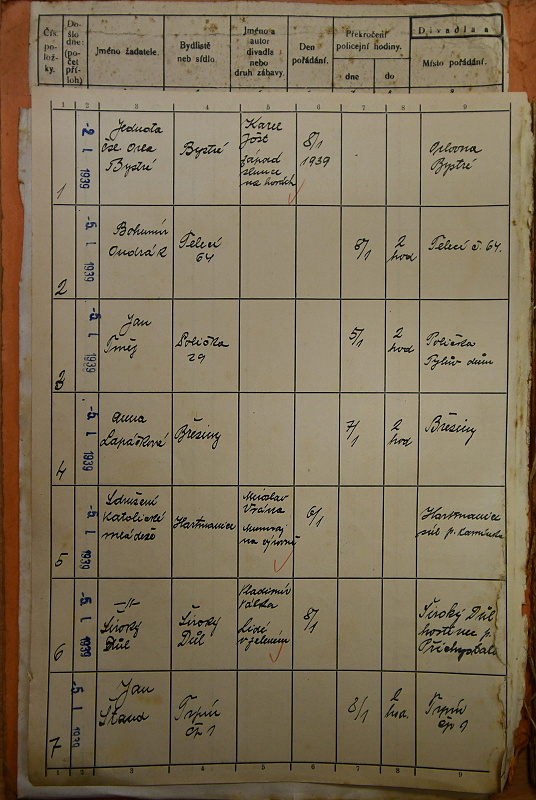 Čís.
po-
lož-
ky.
Do-
šlo
dne:
(po-
čet
pří-
loh)
Jméno žadatele.
Bydliště
neb sídlo.
Jméno a
autor
divadla
nebo
druh zábavy.
Den
pořádání.
Překročení
policejní hodiny.
dne
do
Divadla a
Místo pořádání.
1 2 3 4 5 6 7 8 9
1
-2. I 1939
Jednota
čsl. Orla
Bystré
Bystré
Karel
Jošt
západ
slunce
na horách
8/1
1939
Orlovna
Bystré
2
-5. I 1939
Bohumír
Ondrák
Telecí
64
8/1
2
hod
Telecí č. 64.
3
-5. I 1939
Jan
Polička
29
5/1
2
hod
Polička
Tylův dům
4
-5. I 1939
Anna
Lapáčková
Březiny
7/1
2
hod
Březiny
5
-5. I 1939
Sdružení
Katolické
mládeže
Hartmanice
Miroslav
Vrána
na výměně
6/1
Hartmanice
sál p. Kamínka
6
-5. I 1939
-"-
Široký
Důl
Široký
Důl
Vladimír
Válka
Lidé
v zeleném
8/1
Široký Důl
hostinec p.
Přichystala
7
-5. I 1939
Jan
Štaud
Trpín
čp 1
8/1
2
hod.
Trpín
čp 1
1 2 3 4 5 6 7 8 9